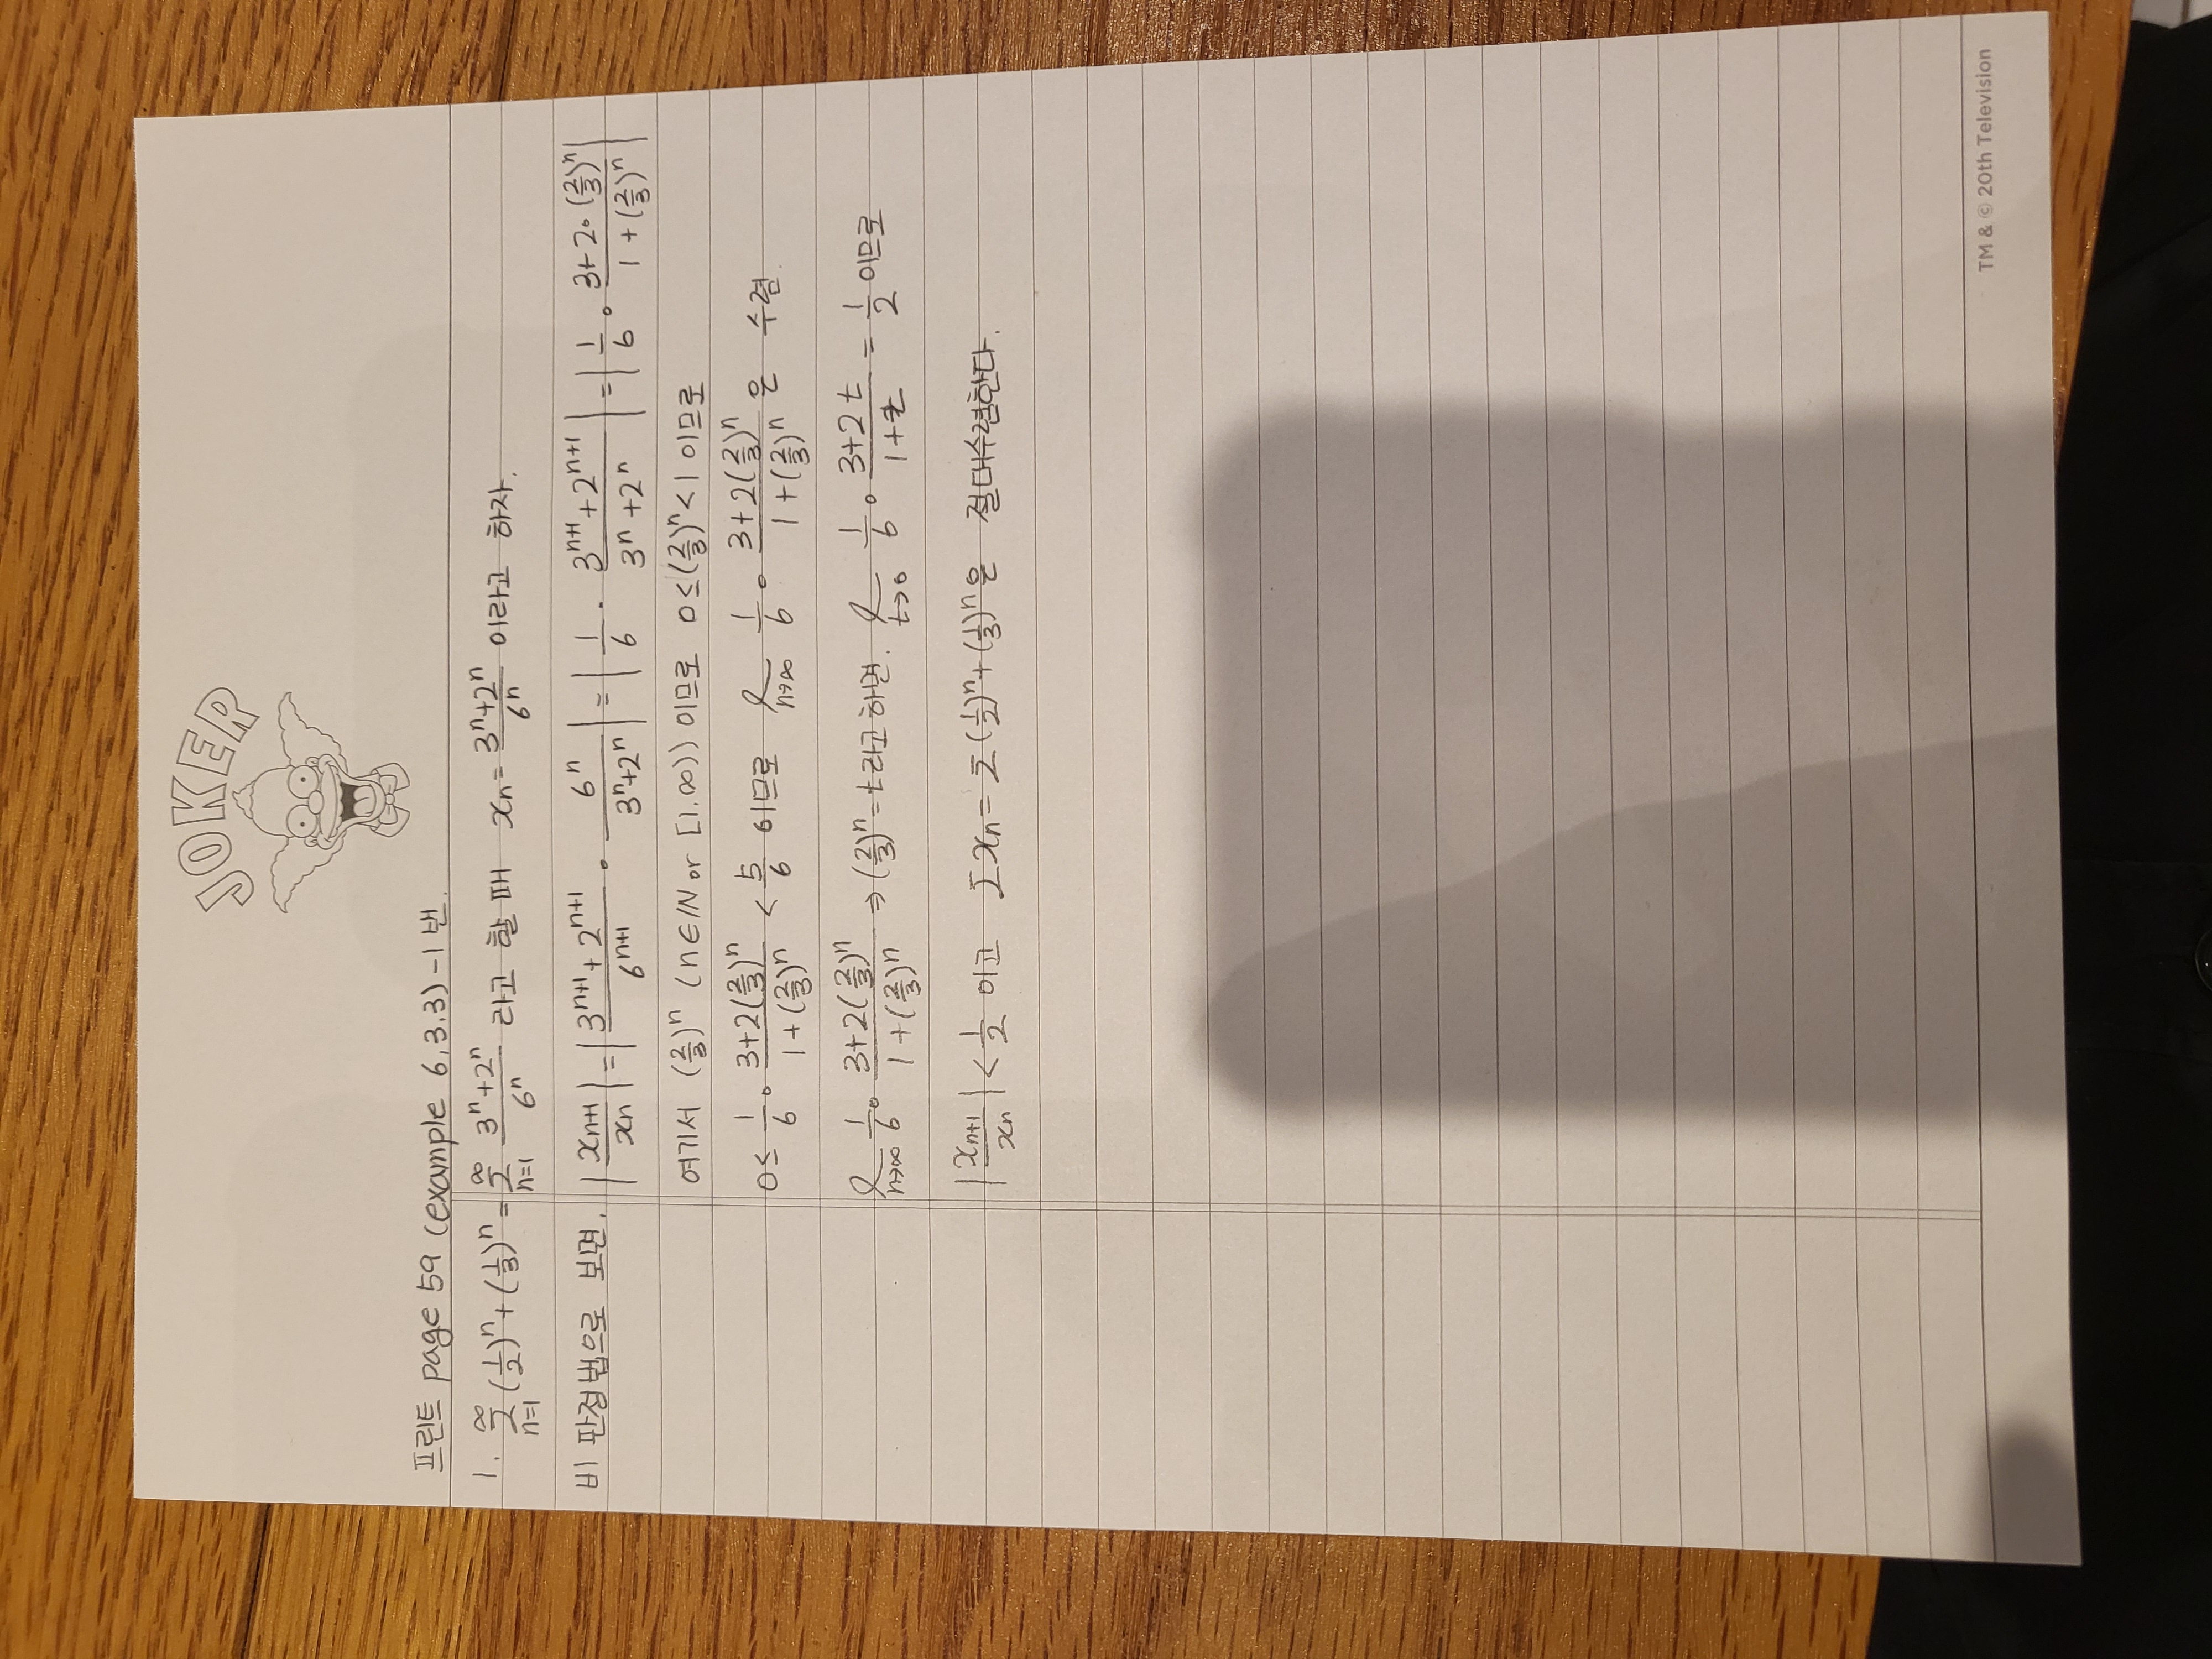 JOKER
프린트 page 59 (example 6.3.3)-1번
1. ∞∑n=1 (1/2)ⁿ+(1/3)ⁿ = ∞∑n=1 (3ⁿ+2ⁿ)/6ⁿ 라고 할 때 xn = (3ⁿ+2ⁿ)/6ⁿ 이라고 하자.
비 판정법으로 보면, |xn+1/xn| = |(3ⁿ⁺¹+2ⁿ⁺¹)/6ⁿ⁺¹ · 6ⁿ/(3ⁿ+2ⁿ)| = |1/6 · (3ⁿ⁺¹+2ⁿ⁺¹)/(3ⁿ+2ⁿ)| = |1/6 · (3+2·(2/3)ⁿ)/(1+(2/3)ⁿ)|
여기서 (2/3)ⁿ (n∈ℕ or [1.∞)) 이므로 0≤(2/3)ⁿ<1 이므로
0≤ 1/6 · (3+2(2/3)ⁿ)/(1+(2/3)ⁿ) < 5/6 이므로 ℓ n→∞ 1/6 · (3+2(2/3)ⁿ)/(1+(2/3)ⁿ) 은 수렴.
ℓ n→∞ 1/6 · (3+2(2/3)ⁿ)/(1+(2/3)ⁿ) ⇒ (2/3)ⁿ=t라고 하면. ℓ t→0 1/6 · (3+2t)/(1+t) = 1/2 이므로
|xn+1/xn| < 1/2 이고 ∑xn = ∑(1/2)ⁿ+(1/3)ⁿ은 절대수렴한다.
TM & © 20th Television